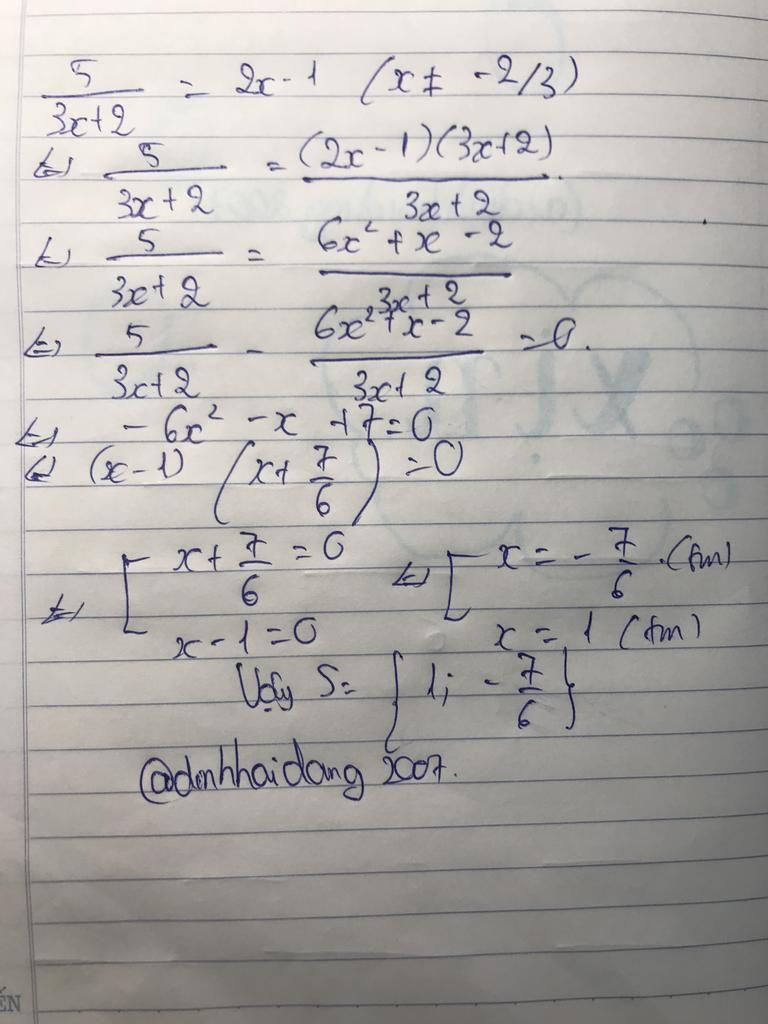 5/(3x+2) = 2x-1 (x ≠ -2/3)
⇔ 5/(3x+2) = (2x-1)(3x+2)/(3x+2).
⇔ 5/(3x+2) = (6x²+x-2)/(3x+2)
⇔ 5/(3x+2) - (6x²+x-2)/(3x+2) = 0.
⇔ -6x² -x +7=0
⇔ (x-1) (x+7/6) = 0
⇔ [ x+7/6 = 0 ⇔ [ x = -7/6 . (tm)
x-1=0 x = 1 (tm)
Vậy S= {1; -7/6}
@dinhhaidang 2007.
ẾN